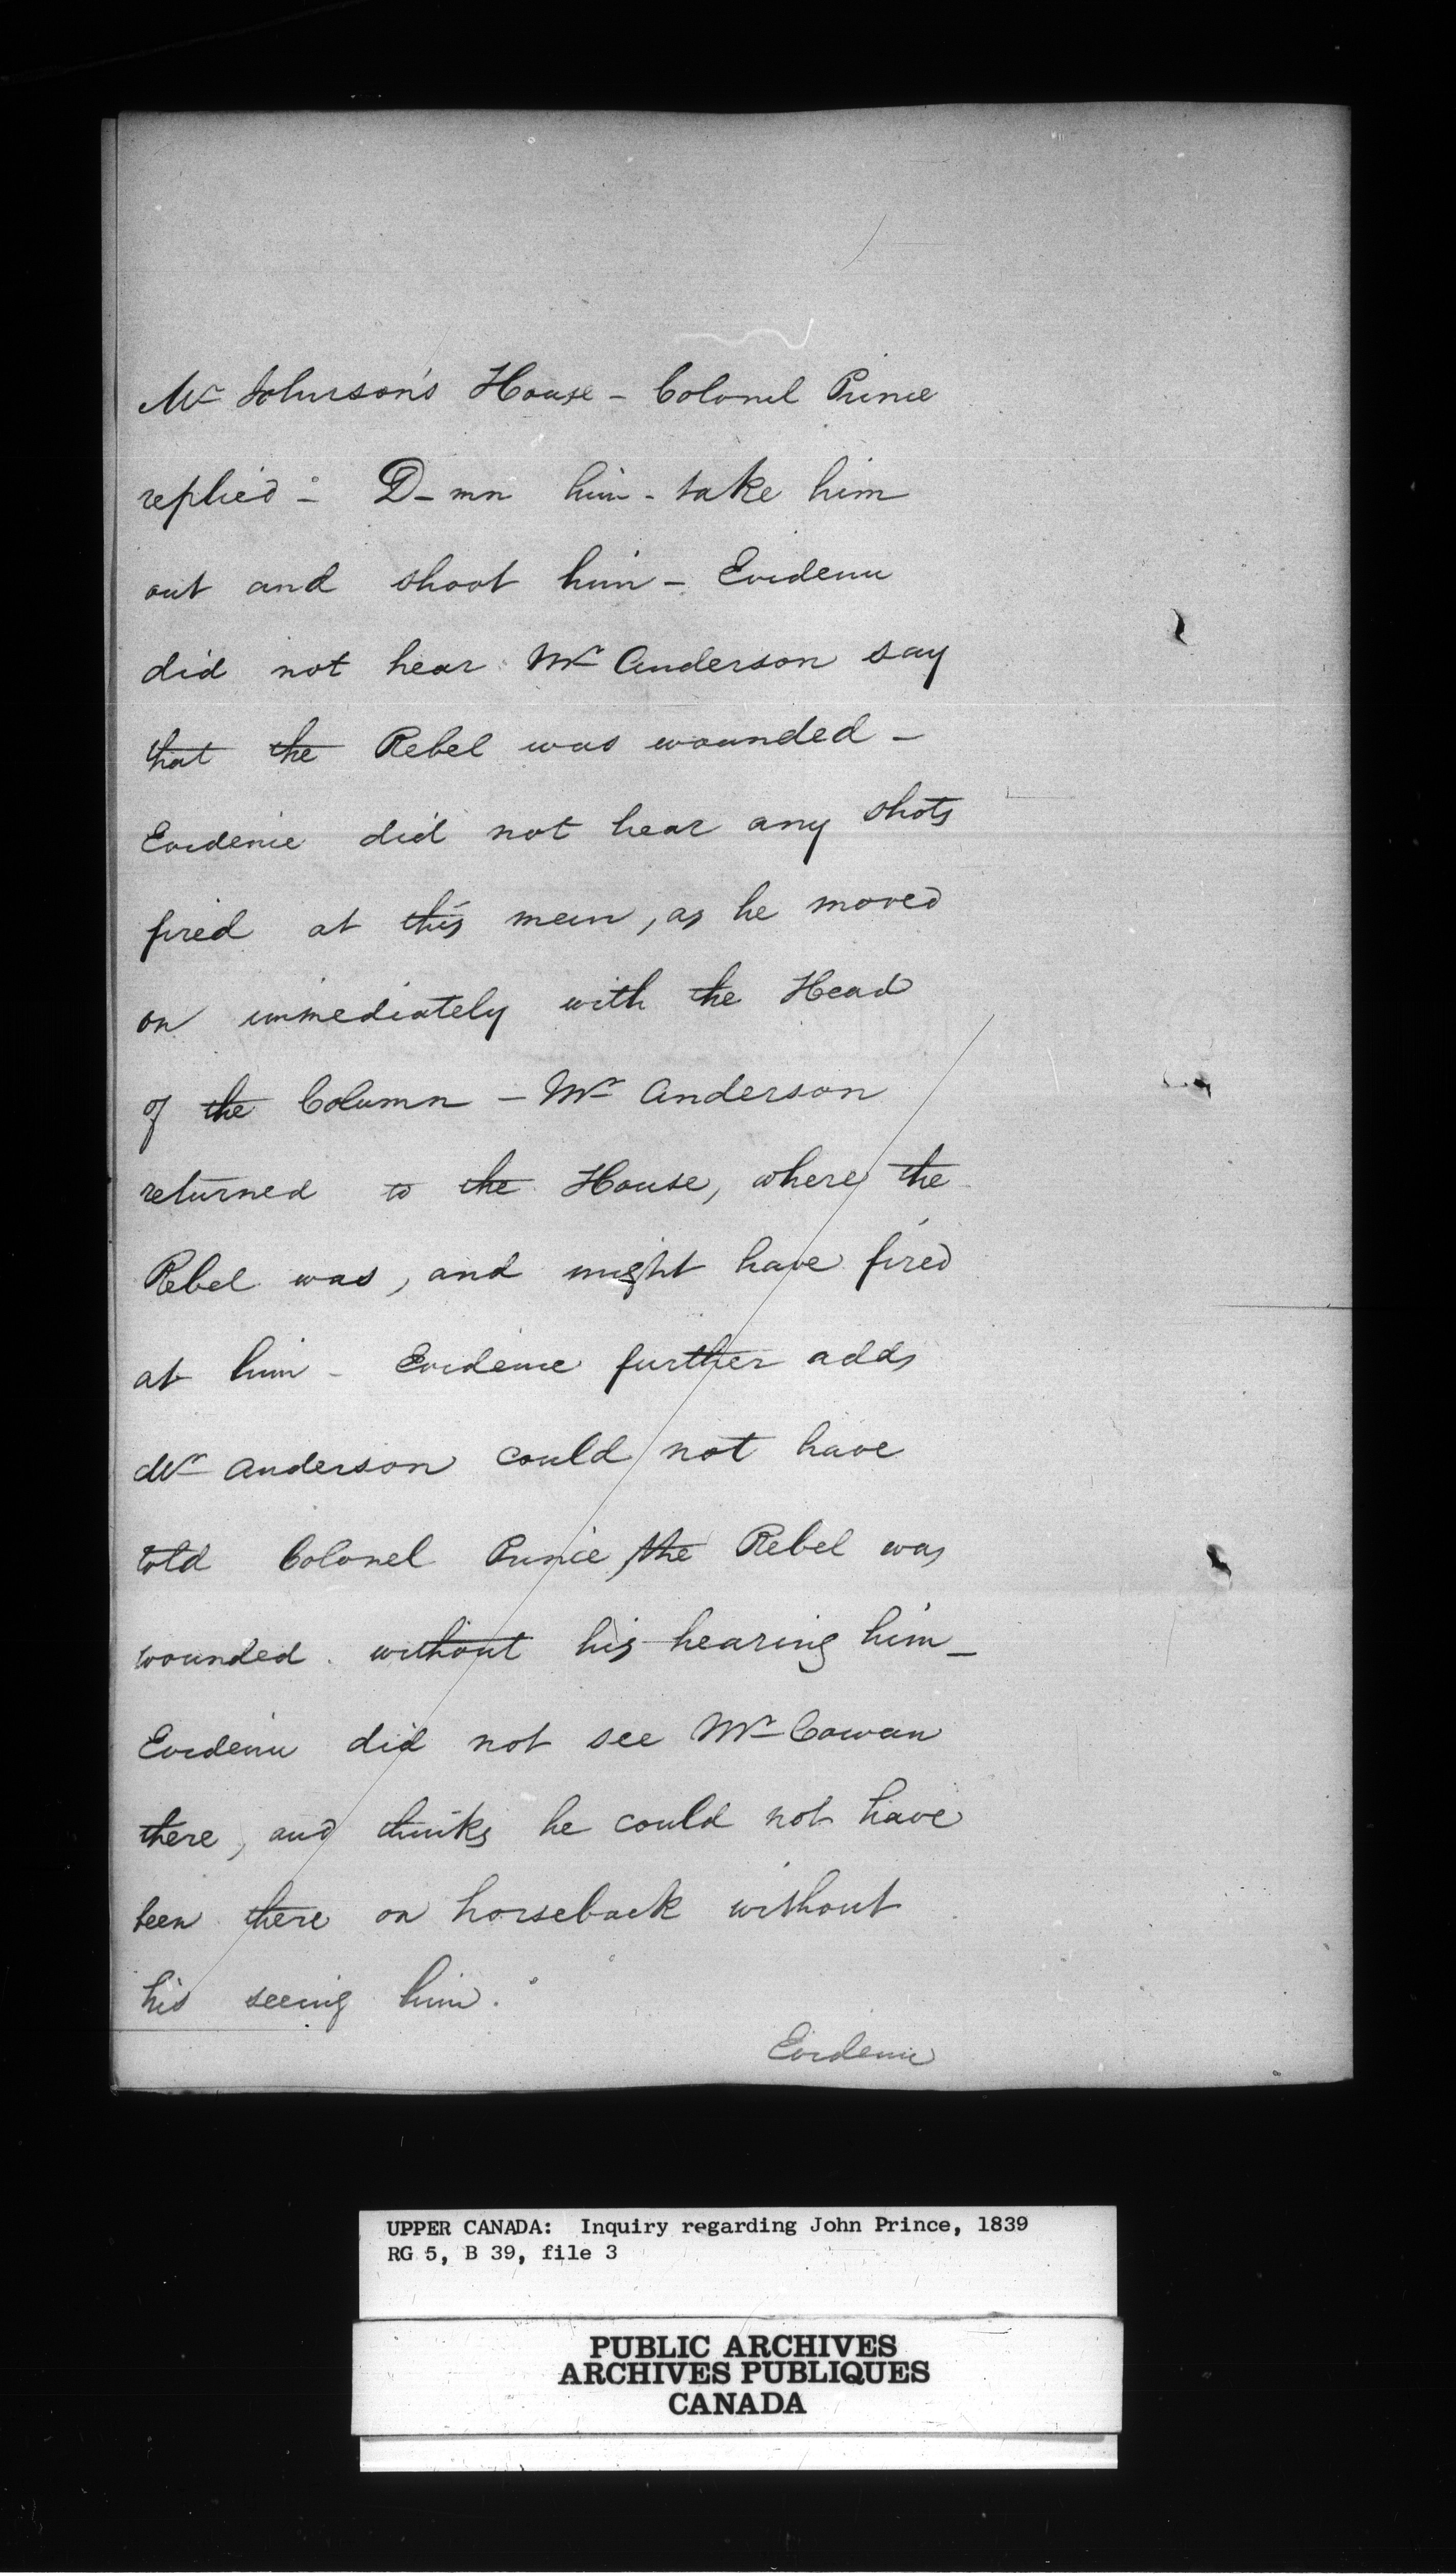 Mr Johnson's House - Colonel Prince
replied - D-mn him - take him
out and shoot him - Evidence
did not hear Mr Anderson say
that the Rebel was wounded -
Evidence did not hear any shots
fired at this man, as he moved
on immediately with the Head
of the Column - Mr Anderson
returned to the House, where the
Rebel was, and might have fired
at him - Evidence further adds
Mr Anderson could not have
told Colonel Prince, the Rebel was
wounded without his hearing him -
Evidence did not see Mr Cowan
there, and thinks he could not have
been there on horseback without
his seeing him.
Evidence
UPPER CANADA: Inquiry regarding John Prince, 1839
RG 5, B 39, file 3
PUBLIC ARCHIVES
ARCHIVES PUBLIQUES
CANADA